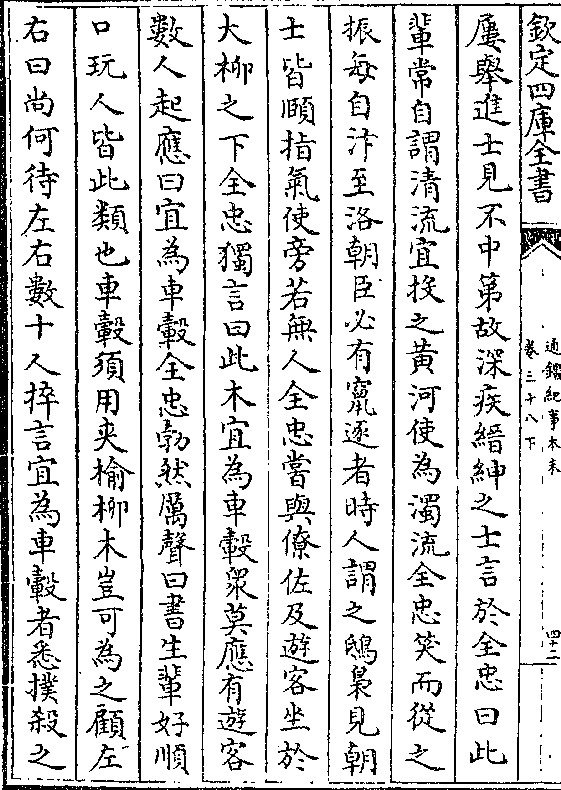 欽定四庫全書
通鑑紀事本末
卷三十八下
四十二
屢舉進士見不中第故深疾縉紳之士言於全忠曰此
輩常自謂清流宜投之黄河使為濁流全忠笑而從之
振每自汴至洛朝臣必有竄逐者時人謂之鴟梟見朝
士皆頤指氣使旁若無人全忠嘗與僚佐及遊客坐於
大柳之下全忠獨言曰此木宜為車轂衆莫應有遊客
數人起應曰宜為車轂全忠勃然厲聲曰書生輩好順
口玩人皆此類也車轂須用夾榆柳木豈可為之顧左
右曰尚何待左右數十人捽言宜為車轂者悉撲殺之